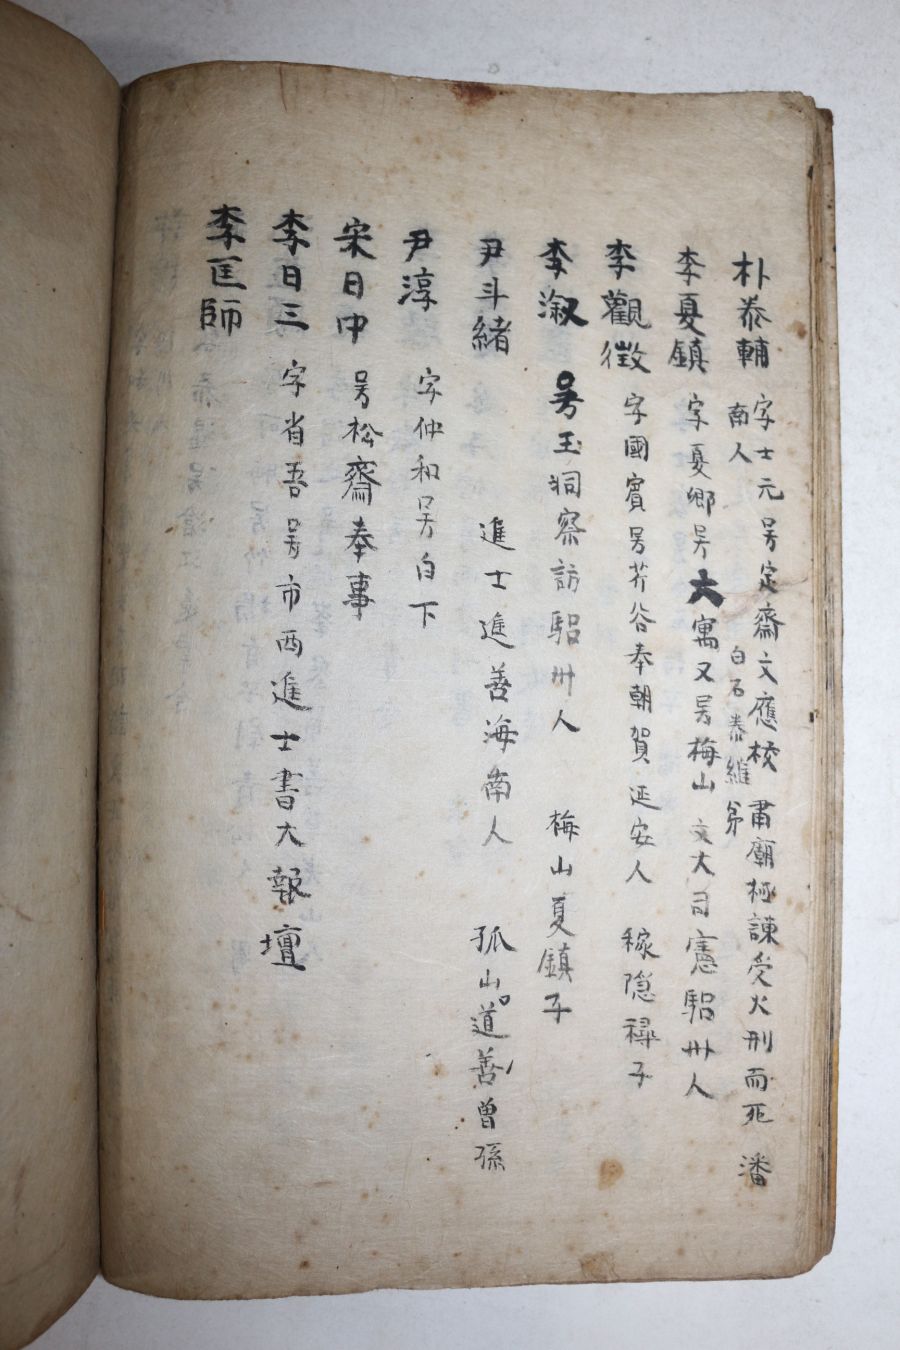 朴泰輔 字士元 号定齋 文應校 肅廟極諫受火刑而死 潘
南人 白石泰維弟
李夏鎮 字夏卿 号六寓 又号梅山 文大司憲 驪州人
李觀徵 字國賓 号芥谷 奉朝賀 延安人 稼隐襑子
李溆 号玉洞 察訪 驪州人 梅山夏鎮子
尹斗緖 進士 進善 海南人 孤山道善曾孫
尹淳 字仲和 号白下
宋日中 号松齋 奉事
李日三 字省吾 号市西 進士 書大報壇
李匡師